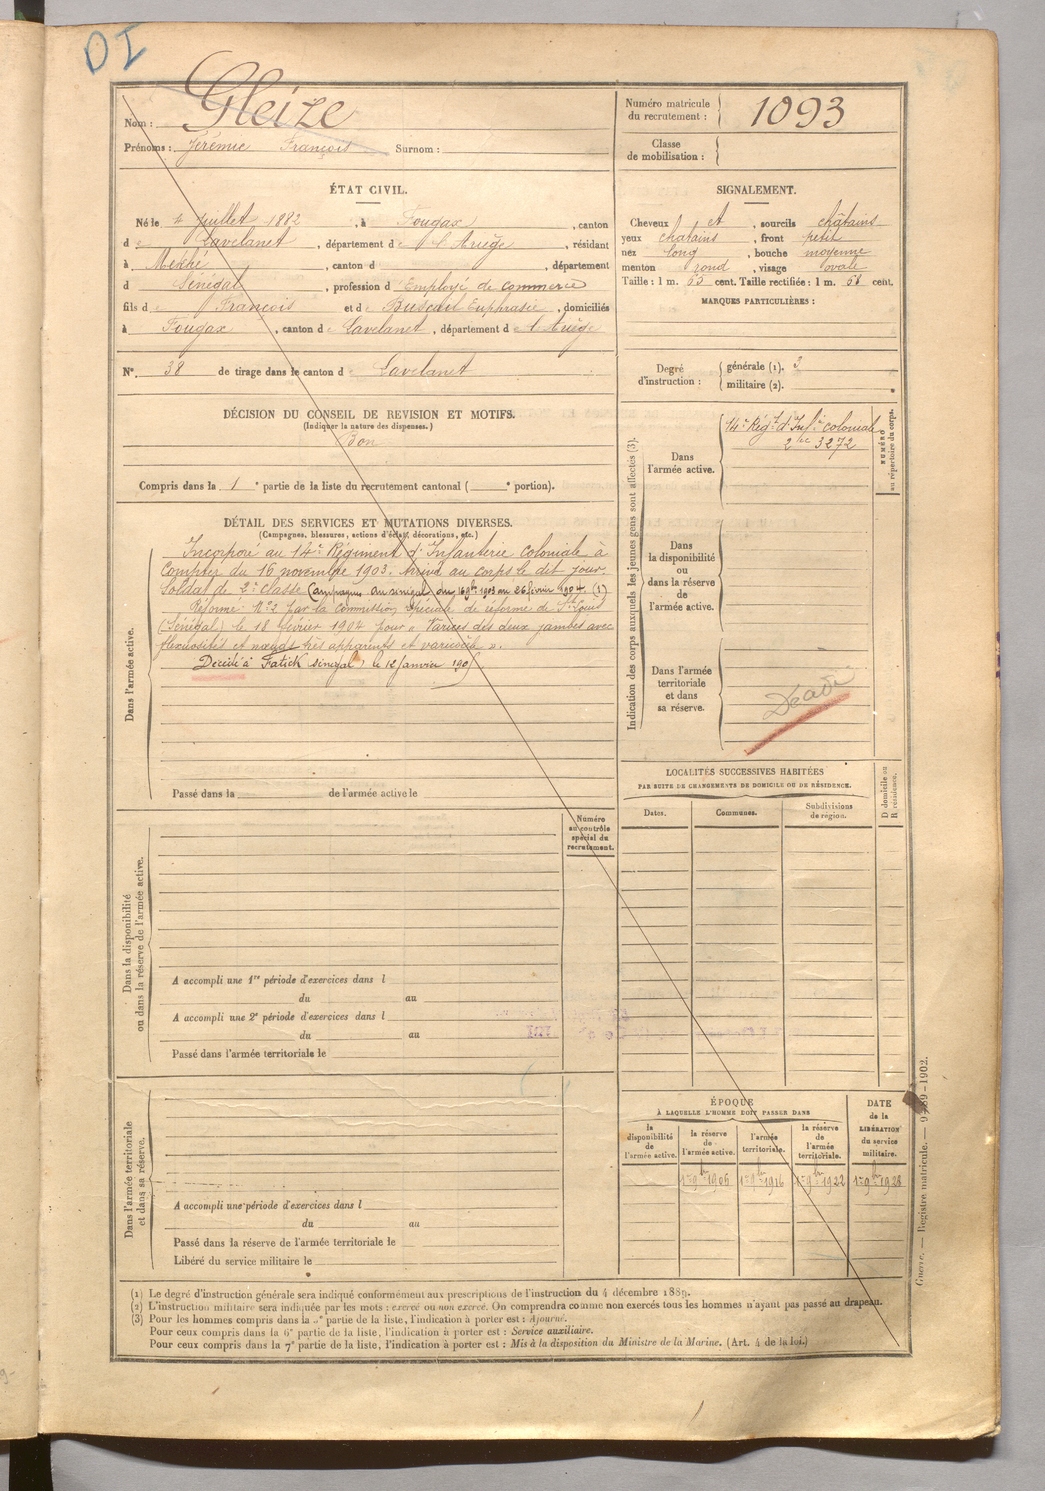 DI
Nom : Gleize
Prénoms : Jérémie François Surnom :
Numéro matricule du recrutement : 1093
Classe de mobilisation :
ÉTAT CIVIL.
Né le 4 Juillet 1882, à Fougax, canton
de Lavelanet, département de l'Ariège, résidant
à Mekhé, canton d , département
d Sénégal, profession d Employé de commerce
fils de François et de Euphrasie, domiciliés
à Fougax, canton de Lavelanet, département d l'Ariège
N° 38 de tirage dans le canton d Lavelanet
SIGNALEMENT.
Cheveux et, sourcils châtains
yeux chatains, front petit
nez long, bouche moyenne
menton rond, visage ovale
Taille : 1 m. 65 cent. Taille rectifiée : 1 m. cent.
MARQUES PARTICULIÈRES :
Degré d'instruction : générale (1). 3
militaire (2).
DÉCISION DU CONSEIL DE REVISION ET MOTIFS.
(Indiquer la nature des dispenses.)
Bon
Compris dans la 1e partie de la liste du recrutement cantonal ( e portion).
DÉTAIL DES SERVICES ET MUTATIONS DIVERSES.
(Campagnes, blessures, actions d'éclat, décorations, etc.)
Dans l'armée active.
Incorporé au 14e Régiment d'Infanterie coloniale à
compter du 16 novembre 1903. Arrivé au corps le dit jour.
Soldat de 2e classe (Campagnes au Sénégal du 16 9bre 1903 au 26 février 1904. (1)
Réformé N°2 par la commission spéciale de réforme de St Louis
(Sénégal) le 18 février 1904 pour « Varices des deux jambes avec
flexuosités et nœuds très apparents et varicocèle ».
Décédé à Fatick Sénégal, le 12 Janvier
Passé dans la de l'armée active le
Indication des corps auxquels les jeunes gens sont affectés (3).
NUMÉRO au répertoire du corps.
Dans l'armée active.
14e Régt d'Infie coloniale
3272
Dans la disponibilité ou dans la réserve de l'armée active.
Dans l'armée territoriale et dans sa réserve.
LOCALITÉS SUCCESSIVES HABITÉES
PAR SUITE DE CHANGEMENTS DE DOMICILE OU DE RÉSIDENCE.
Dates. Communes. Subdivisions de région. D domicile ou R résidence.
Dans la disponibilité ou dans la réserve de l'armée active.
Numéro au contrôle spécial du recrutement.
A accompli une 1re période d'exercices dans l
du au
A accompli une 2e période d'exercices dans l
du au
Passé dans l'armée territoriale le
Dans l'armée territoriale et dans sa réserve.
A accompli une période d'exercices dans l
du au
Passé dans la réserve de l'armée territoriale le
Libéré du service militaire le
ÉPOQUE
À LAQUELLE L'HOMME DOIT PASSER DANS
la disponibilité de l'armée active. la réserve de l'armée active. l'armée territoriale. la réserve de l'armée territoriale.
DATE de la LIBÉRATION du service militaire.
1er 9bre 1906 1er 9bre 1916 1er 9bre 1922 1er 9bre 1928
(1) Le degré d'instruction générale sera indiqué conformément aux prescriptions de l'instruction du 4 décembre 1889.
(2) L'instruction militaire sera indiquée par les mots : exercé ou non exercé. On comprendra comme non exercés tous les hommes n'ayant pas passé au drapeau.
(3) Pour les hommes compris dans la partie de la liste, l'indication à porter est : Ajourné.
Pour ceux compris dans la 6e partie de la liste, l'indication à porter est : Service auxiliaire.
Pour ceux compris dans la 7e partie de la liste, l'indication à porter est : Mis à la disposition du Ministre de la Marine. (Art. 4 de la loi.)
Guerre. — Registre matricule. — 1902.